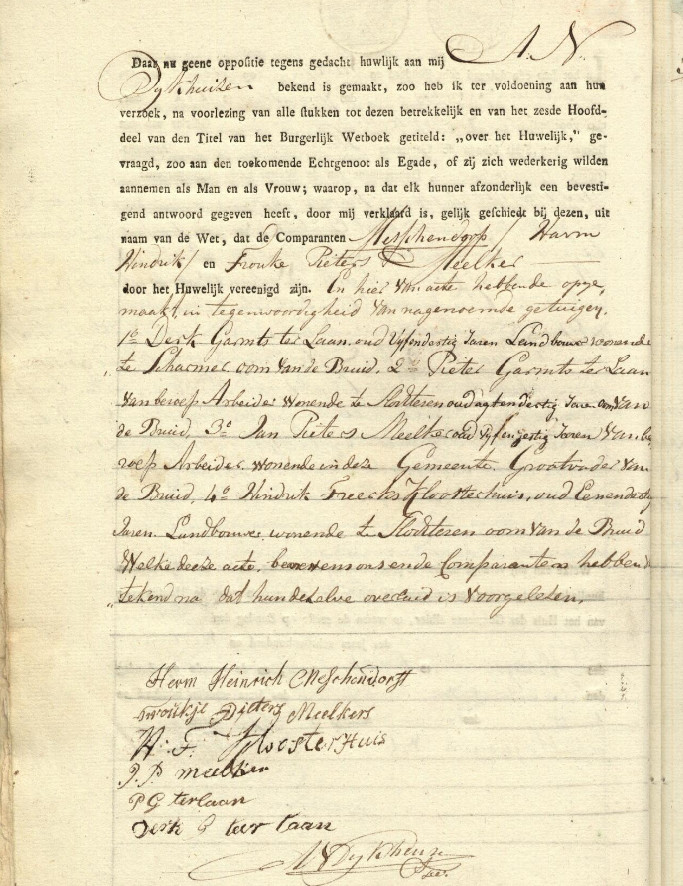 Daar nu geene oppositie tegens gedacht huwlijk aan mij A. N.
Dijkhuizen bekend is gemaakt, zoo heb ik ter voldoening aan hun
verzoek, na voorlezing van alle stukken tot dezen betrekkelijk en van het zesde Hoofd-
deel van den Titel van het Burgerlijk Wetboek getiteld: „over het Huwelijk,” ge-
vraagd, zoo aan den toekomende Echtgenoot als Egade, of zij zich wederkerig wilden
aannemen als Man en als Vrouw; waarop, na dat elk hunner afzonderlijk een bevesti-
gend antwoord gegeven heeft, door mij verklaard is, gelijk geschiedt bij dezen, uit
naam van de Wet, dat de Comparanten Meschendorp / Harm
Hindrik / en Frouke Pieters Meelker
door het Huwelijk vereenigd zijn. En hier van acte hebbende opge
maakt in tegenwoordigheid van nagenoemde getuigen,
1º Derk Garmts ter Laan, oud Vijfendertig Jaren Landbouwer wonende
te Scharmer oom van de Bruid, 2º Pieter Garmts ter Laan
van beroep Arbeider wonende te Slochteren oud agtendertig Jaren oom van
de Bruid, 3º Jan Pieters Meelker oud Jaren van be
roep Arbeider wonende in deze Gemeente Grootvader van
de Bruid, 4º Hindrik Freerks Kloosterhuis, oud Eenendertig
Jaren Landbouwer wonende te Slochteren oom van de Bruid
Welke deeze acte, benevens ons en de Comparanten hebben ge
„tekend na dat hun dezelve overluid is voorgelezen,
Herm Heinrich Meschendorff
Froukje Pieters Meelkers
H. F. Kloosterhuis
J. P. meelker
P G terlaan
Derk G teer Laan
A N Dijkhuizen